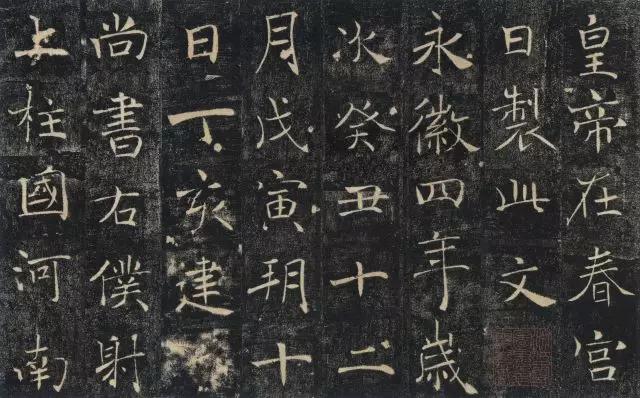 皇帝在春宮
日製此文
永徽四年歲
次癸丑十二
月戊寅玥十
日丁亥建
尚書右僕射
上柱國河南